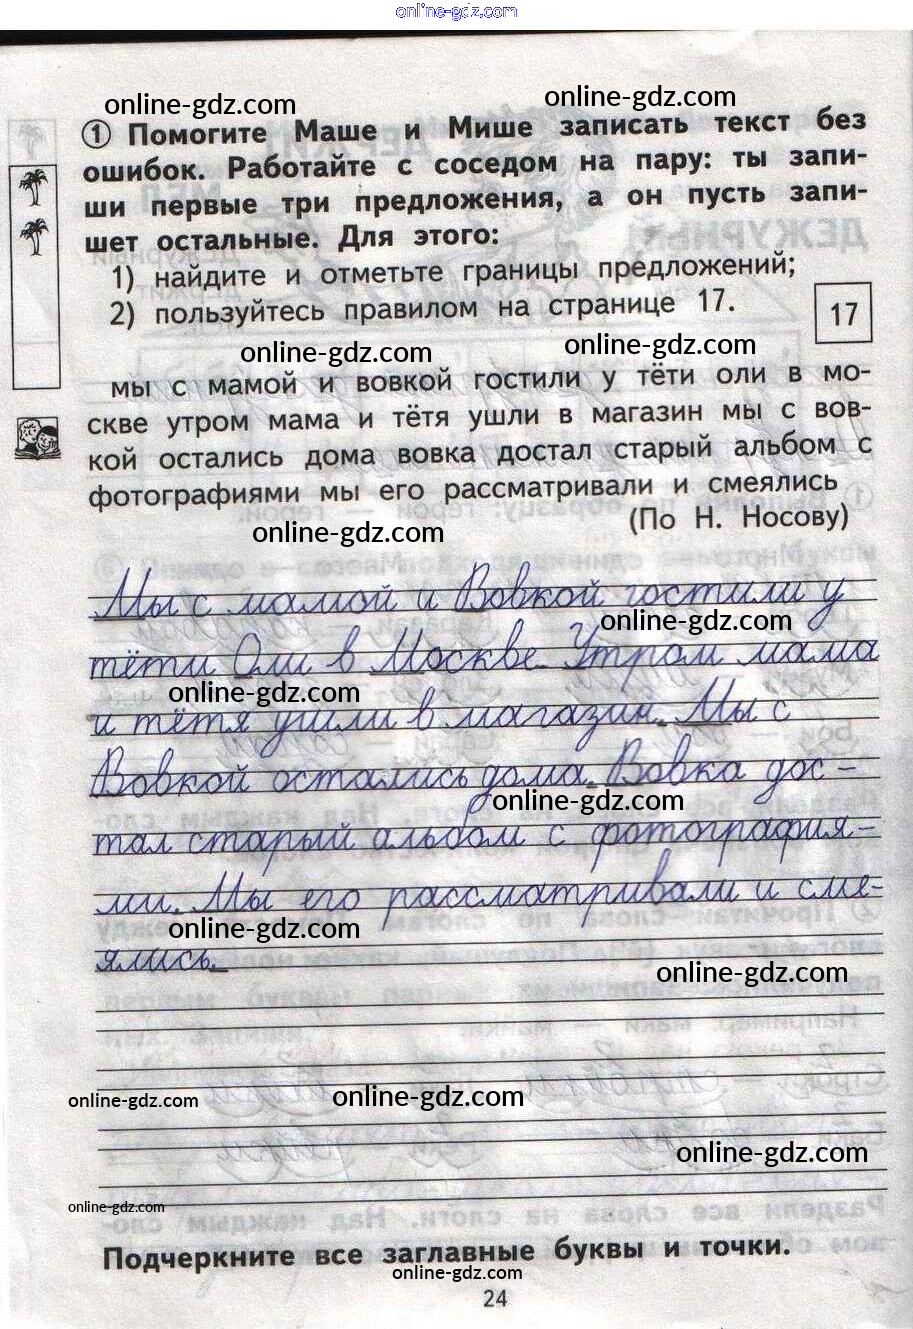 online-gdz.com
online-gdz.com online-gdz.com
① Помогите Маше и Мише записать текст без
ошибок. Работайте с соседом на пару: ты запи-
ши первые три предложения, а он пусть запи-
шет остальные. Для этого:
1) найдите и отметьте границы предложений;
2) пользуйтесь правилом на странице 17.
17
online-gdz.com online-gdz.com
мы с мамой и вовкой гостили у тёти оли в мо-
скве утром мама и тётя ушли в магазин мы с вов-
кой остались дома вовка достал старый альбом с
фотографиями мы его рассматривали и смеялись
(По Н. Носову)
online-gdz.com
Мы с мамой и Вовкой гостили у
online-gdz.com
тёти Оли в Москве. Утром мама
online-gdz.com
и тётя ушли в магазин. Мы с
Вовкой остались дома. Вовка дос-
online-gdz.com
тал старый альбом с фотография-
ми. Мы его рассматривали и сме-
online-gdz.com
ялись.
online-gdz.com
online-gdz.com online-gdz.com
online-gdz.com
online-gdz.com
Подчеркните все заглавные буквы и точки.
online-gdz.com
24